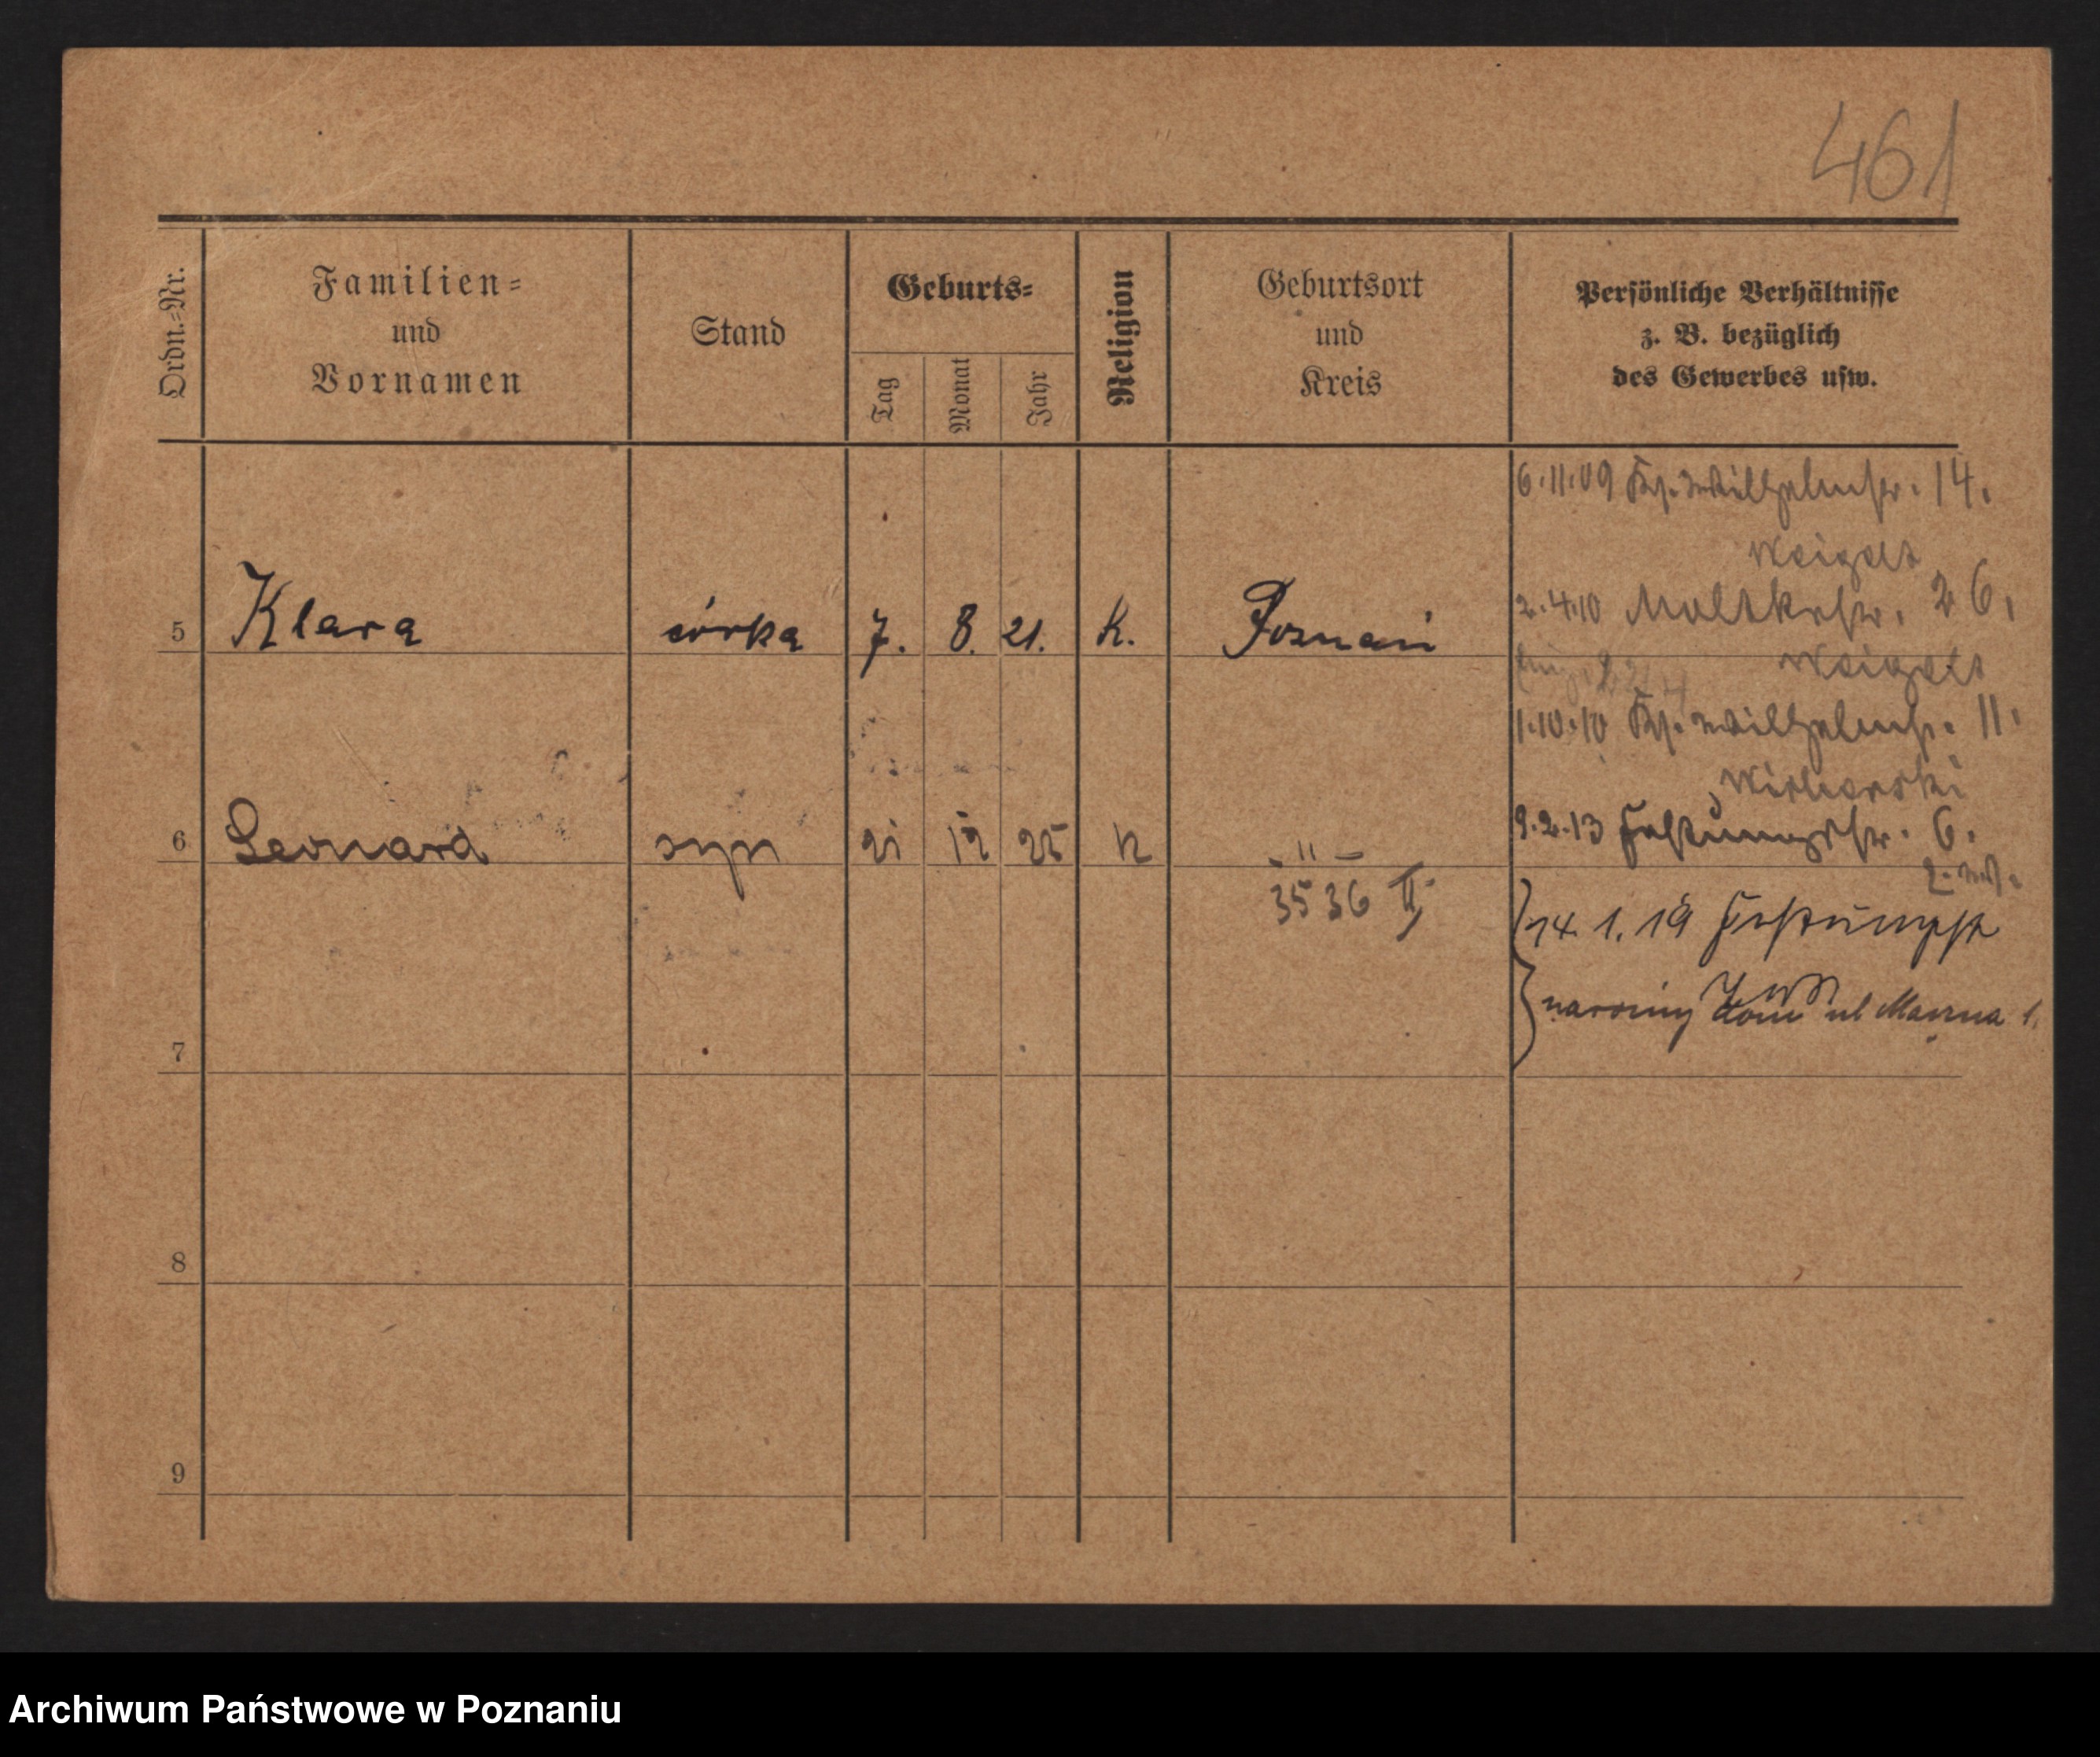 461
Ordn.-Nr.
Familien-
und
Vornamen
Stand
Geburts-
Tag
Monat
Jahr
Religion
Geburtsort
und
Kreis
Persönliche Verhältnisse
z. B. bezüglich
des Gewerbes usw.
6.11.09 Ks. Wilhelmstr. 14.
Weigelt
5 Klara córka 7. 8. 21. K. Poznań
2.4.10 Moltkestr. 26.
Weigelt
1.10.10 Ks. Wilhelmstr. 11.
6 Leonard syn 21 12 25 k - " -
9.2.13 Festungsstr. 6.
35 36 II
14. 1. 19 Festungsst
narożny dom ul Marsza 1.
7
8
9
Archiwum Państwowe w Poznaniu